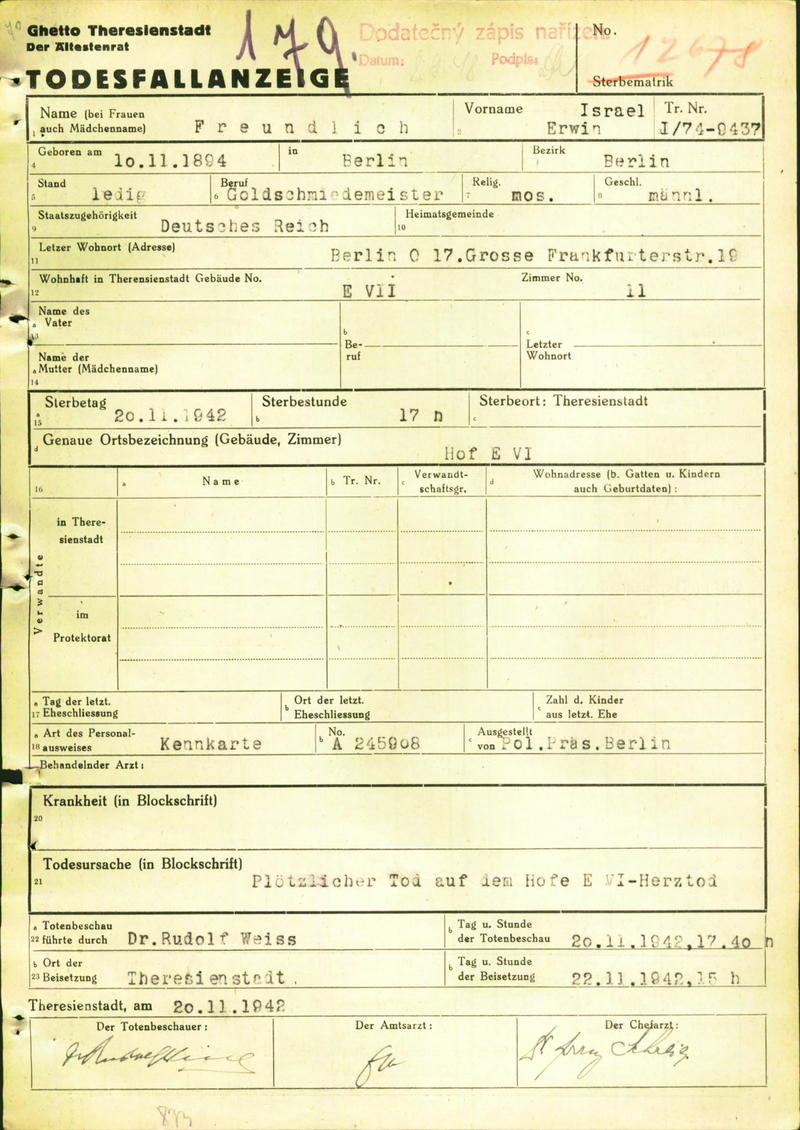 Ghetto Theresienstadt
Der Ältestenrat
179.
Dodatečný zápis nařízen
Datum: Podpis:
No. 12678
Sterbematrik
TODESFALLANZEIGE
Name (bei Frauen
1 auch Mädchenname) Freundlich
2 Vorname Israel
Erwin
Tr. Nr.
I/74-9437
4 Geboren am 10.11.1894 in Berlin Bezirk Berlin
5 Stand ledig 6 Beruf Goldschmiedemeister 7 Relig. mos. 8 Geschl. männl.
9 Staatszugehörigkeit Deutsches Reich 10 Heimatsgemeinde
11 Letzer Wohnort (Adresse) Berlin O 17.Grosse Frankfurterstr.19
12 Wohnhaft in Therensienstadt Gebäude No. E VII Zimmer No. 11
13 a Name des Vater b Beruf c Letzter Wohnort
14 a Name der Mutter (Mädchenname)
a 15 Sterbetag 20.11.1942 b Sterbestunde 17 h c Sterbeort: Theresienstadt
d Genaue Ortsbezeichnung (Gebäude, Zimmer) Hof E VI
16 a Name b Tr. Nr. c Verwandt-
schaftsgr. d Wohnadresse (b. Gatten u. Kindern
auch Geburtdaten):
Verwandte
in There-
sienstadt
im
Protektorat
a 17 Tag der letzt.
Eheschliessung b Ort der letzt.
Eheschliessung c Zahl d. Kinder
aus letzt. Ehe
a 18 Art des Personal-
ausweises Kennkarte b No. A 245908 c Ausgestellt
von Pol.Präs.Berlin
Behandelnder Arzt:
20 Krankheit (in Blockschrift)
21 Todesursache (in Blockschrift)
Plötzlicher Tod auf dem Hofe E VI-Herztod
a 22 Totenbeschau
führte durch Dr.Rudolf Weiss b Tag u. Stunde
der Totenbeschau 20.11.1942,17.40 h
b 23 Ort der
Beisetzung Theresienstadt. b Tag u. Stunde
der Beisetzung 22.11.1942,15 h
Theresienstadt, am 20.11.1942
Der Totenbeschauer: Der Amtsarzt: Der Chefarzt: